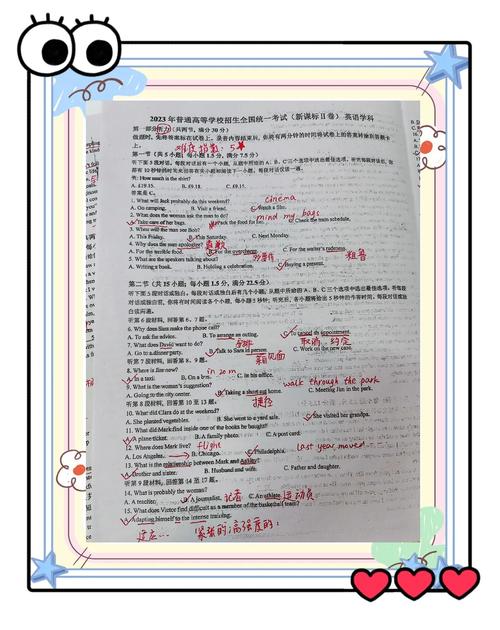 2023 年普通高等学校招生全国统一考试(新课标Ⅱ卷)英语学科
第一部分听力(共两节, 满分 30 分)
做题时, 先将答案标在试卷上。录音内容结束后, 你将有两分钟的时间将试卷上的答案转涂到答题卡
上。 难度指数: 5★
第一节(共 5 小题; 每小题 1.5 分, 满分 7.5 分)
听下面 5 段对话。每段对话后有一个小题, 从题中所给的 A、B、C 三个选项中选出最佳选项。听完每段对话后, 你
都有 10 秒钟的时间来回答有关小题和阅读下一小题。每段对话仅读一遍。
例: How much is the shirt?
A. £19.15. B. £9.18. C. £9.15.
答案是 C。
cinema
1. What will Jack probably do this weekend?
A. Go camping. B. Visit a friend. C. Watch a film.
2. What does the woman ask the man to do? mind my bags
A. Take care of her bags. B. Watch the food for her. C. Check the train schedule.
3. When will the man see Bob?
A. This Friday. B. This Saturday. C. Next Monday.
4. Why does the man apologize? 道歉
A. For the terrible food. B. For the overcharge. C. For the waiter's rudeness.
粗鲁
5. What are the speakers talking about?
A. Writing a book. B. Holding a celebration. C. Buying a present.
第二节(共 15 小题; 每小题 1.5 分, 满分 22.5 分)
听下面 5 段对话或独白。每段对话或独白后有几个小题, 从题中所给的 A、B、C 三个选项中选出最佳选项。听每段
对话或独白前, 你将有时间阅读各个小题, 每小题 5 秒钟; 听完后, 各小题将给出 5 秒钟的作答时间。每段对话或独
白读两遍。
听第 6 段材料, 回答第 6、7 题。
6. Why does Sara make the phone call?
A. To ask for advice. B. To arrange an outing. C. To cancel an appointment.
安排 取消 约定
7. What does David want to do?
A. Go to a dinner party. B. Talk to Sara in person. C. Work on the new case.
亲自见面
听第 7 段材料, 回答第 8、9 题。
8. Where is Jim now? in zoom
A. In a taxi. B. On a bus. C. In his office.
9. What is the woman's suggestion? walk through the park
A. Going to the city center. B. Taking a shortcut home. C. Meeting Jim in the park.
捷径
听第 8 段材料, 回答第 10 至 13 题。
10. What did Clara do at the weekend?
A. She planted vegetables. B. She went to a yard sale. C. She visited her grandpa.
11. What did Mark find inside one of the books he bought?
A. A plane ticket. B. A family photo. C. A post card.
12. Where does Mark live? flight last year moved
A. Los Angeles. B. Chicago. C. Philadelphia.
13. What is the relationship between Mark and Ashley?
A. Brother and sister. B. Husband and wife. C. Father and daughter.
听第 9 段材料, 回答第 14 至 17 题。
14. What is probably the woman?
A. A teacher. B. A journalist. 记者 C. An athlete. 运动员
15. What does Victor find difficult as a member of the basketball team?
A. Adapting himself to the intense training.
适应... 紧张的; 高强度的: